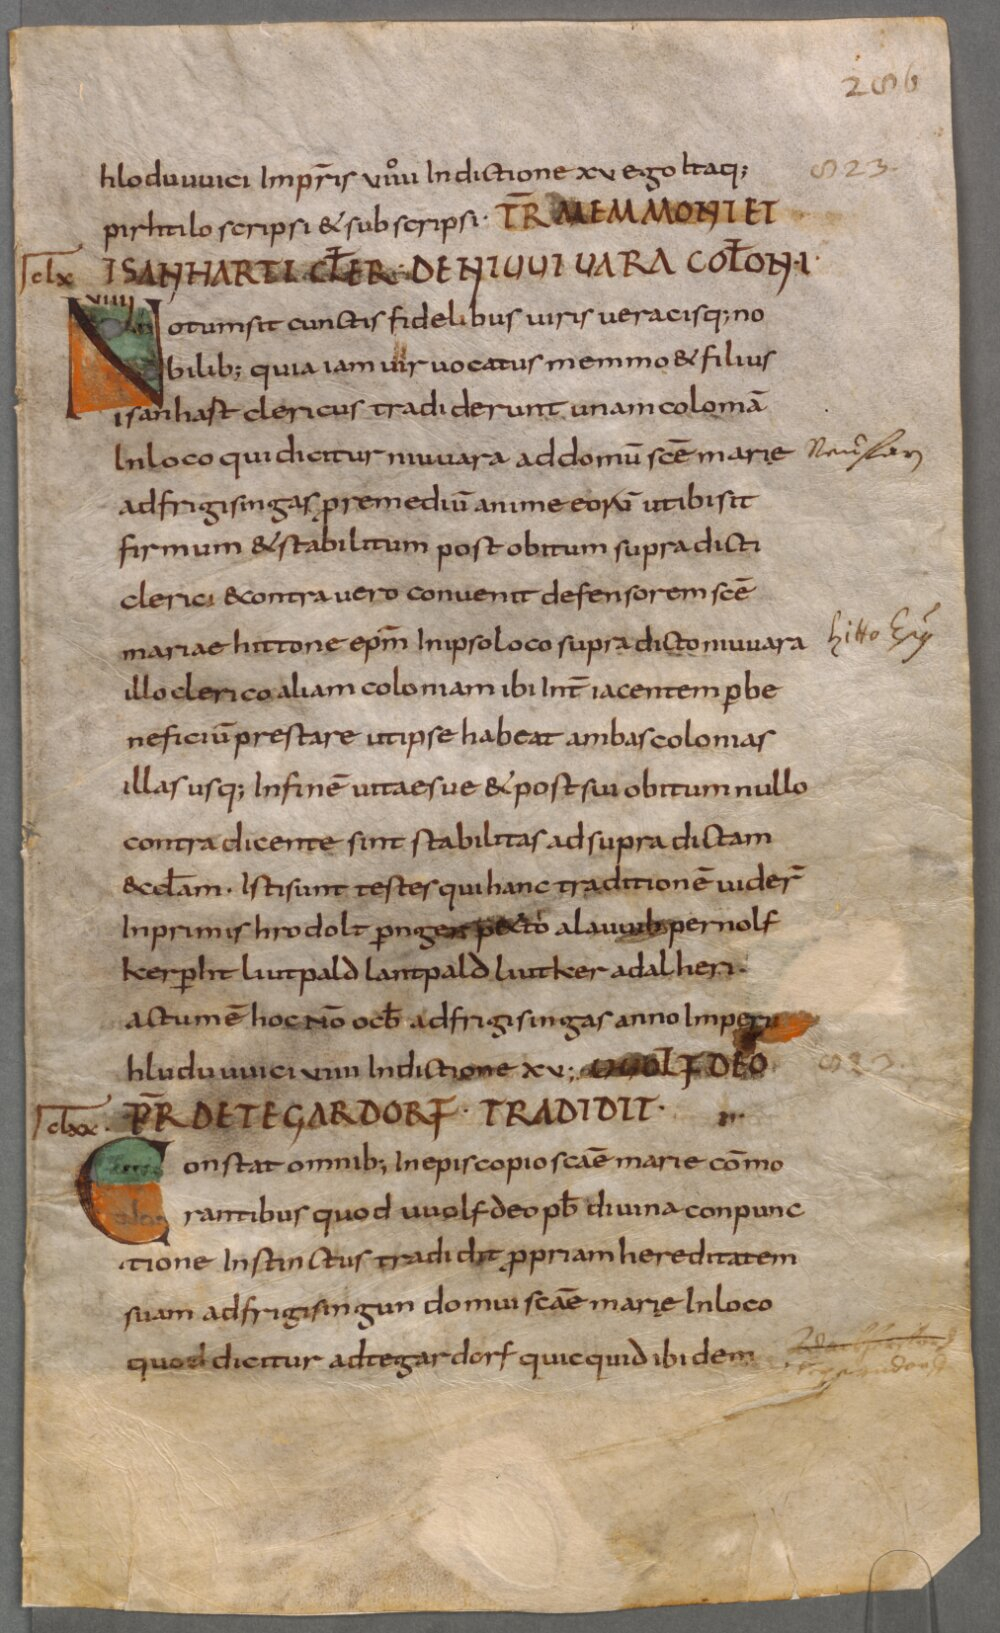 286
hloduuuici Imp̄r̄is viiii Indictione xv ego Itaq;
823.
pirhtilo scripsi & subscripsi· TR̄ MEMMONI ET
clx
viiii
ISANHARTI CL̄ER· DE NIUUIUARA COL̄ONI·
Notum sit cunctis fidelibus uiris ueracisq; no
bilib; quia iam uir uocatus memmo & filius
isanhast clericus tradiderunt unam coloniā
In loco qui dicitur niuuara ad domū scē marię
ad frigisingas p remediū anime eorū ut ibi sit
firmum & stabilitum post obitum supradicti
clerici & contra uero conuenit defensorem scē
mariae hittone ep̄m In ipso loco supradicto niuuara
hitto
illo clerico aliam coloniam ibi Int̄ iacentem p be
neficiū prestare ut ipse habeat ambas colonias
illas usq; In finē uitae sue & post sui obitum nullo
contradicente sint stabilitas ad supradictam
& ccl̄am· Isti sunt testes qui hanc traditionē uider̄
In primis hrodolt pnger pexto alauuih pernolf
kerpht liutpald lantpald liutker adalheri·
actum ē hoc nō ocb̄ ad frigisingas anno Imperii
hluduuuici viiii Indictione xv; UUOLFDEO
clxx·
PR̄ DE TEGARDORF· TRADIDIT·
Constat omnib; In episcopio scāe marie cōmo
rantibus quod uuolfdeo pb̄ diuina conpunc
tione Instinctus tradidit ppriam hereditatem
suam ad frigisingun domui scāe marię In loco
quod dicitur ad tegardorf quicquid ibidem